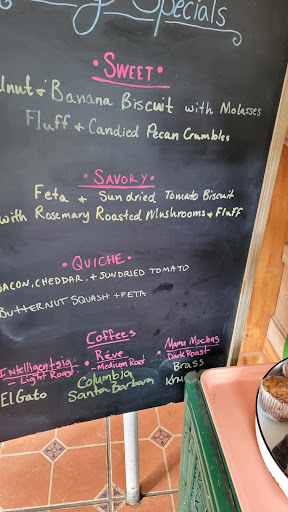 Specials
• SWEET •
& Banana Biscuit with Molasses
Fluff & Candied Pecan Crumbles
• SAVORY •
Feta & Sundried Tomato Biscuit
with Rosemary Roasted Mushrooms & Fluff
• QUICHE •
BACON, CHEDDAR, & SUNDRIED TOMATO
BUTTERNUT SQUASH & FETA
Coffees
Intelligentsia
- Light Roast
El Gato
Rêve
- Medium Roast
Columbia
Santa Barbara
Mama Mochas
- Dark Roast
Brass